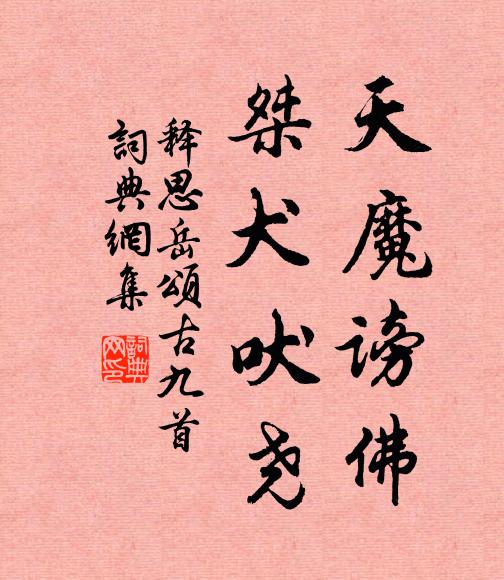 天魔谤佛
桀犬吠尧
释思岳頌古九首
詞典網集
詞典
网印